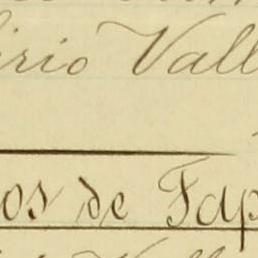 irio Vall
os de Tap